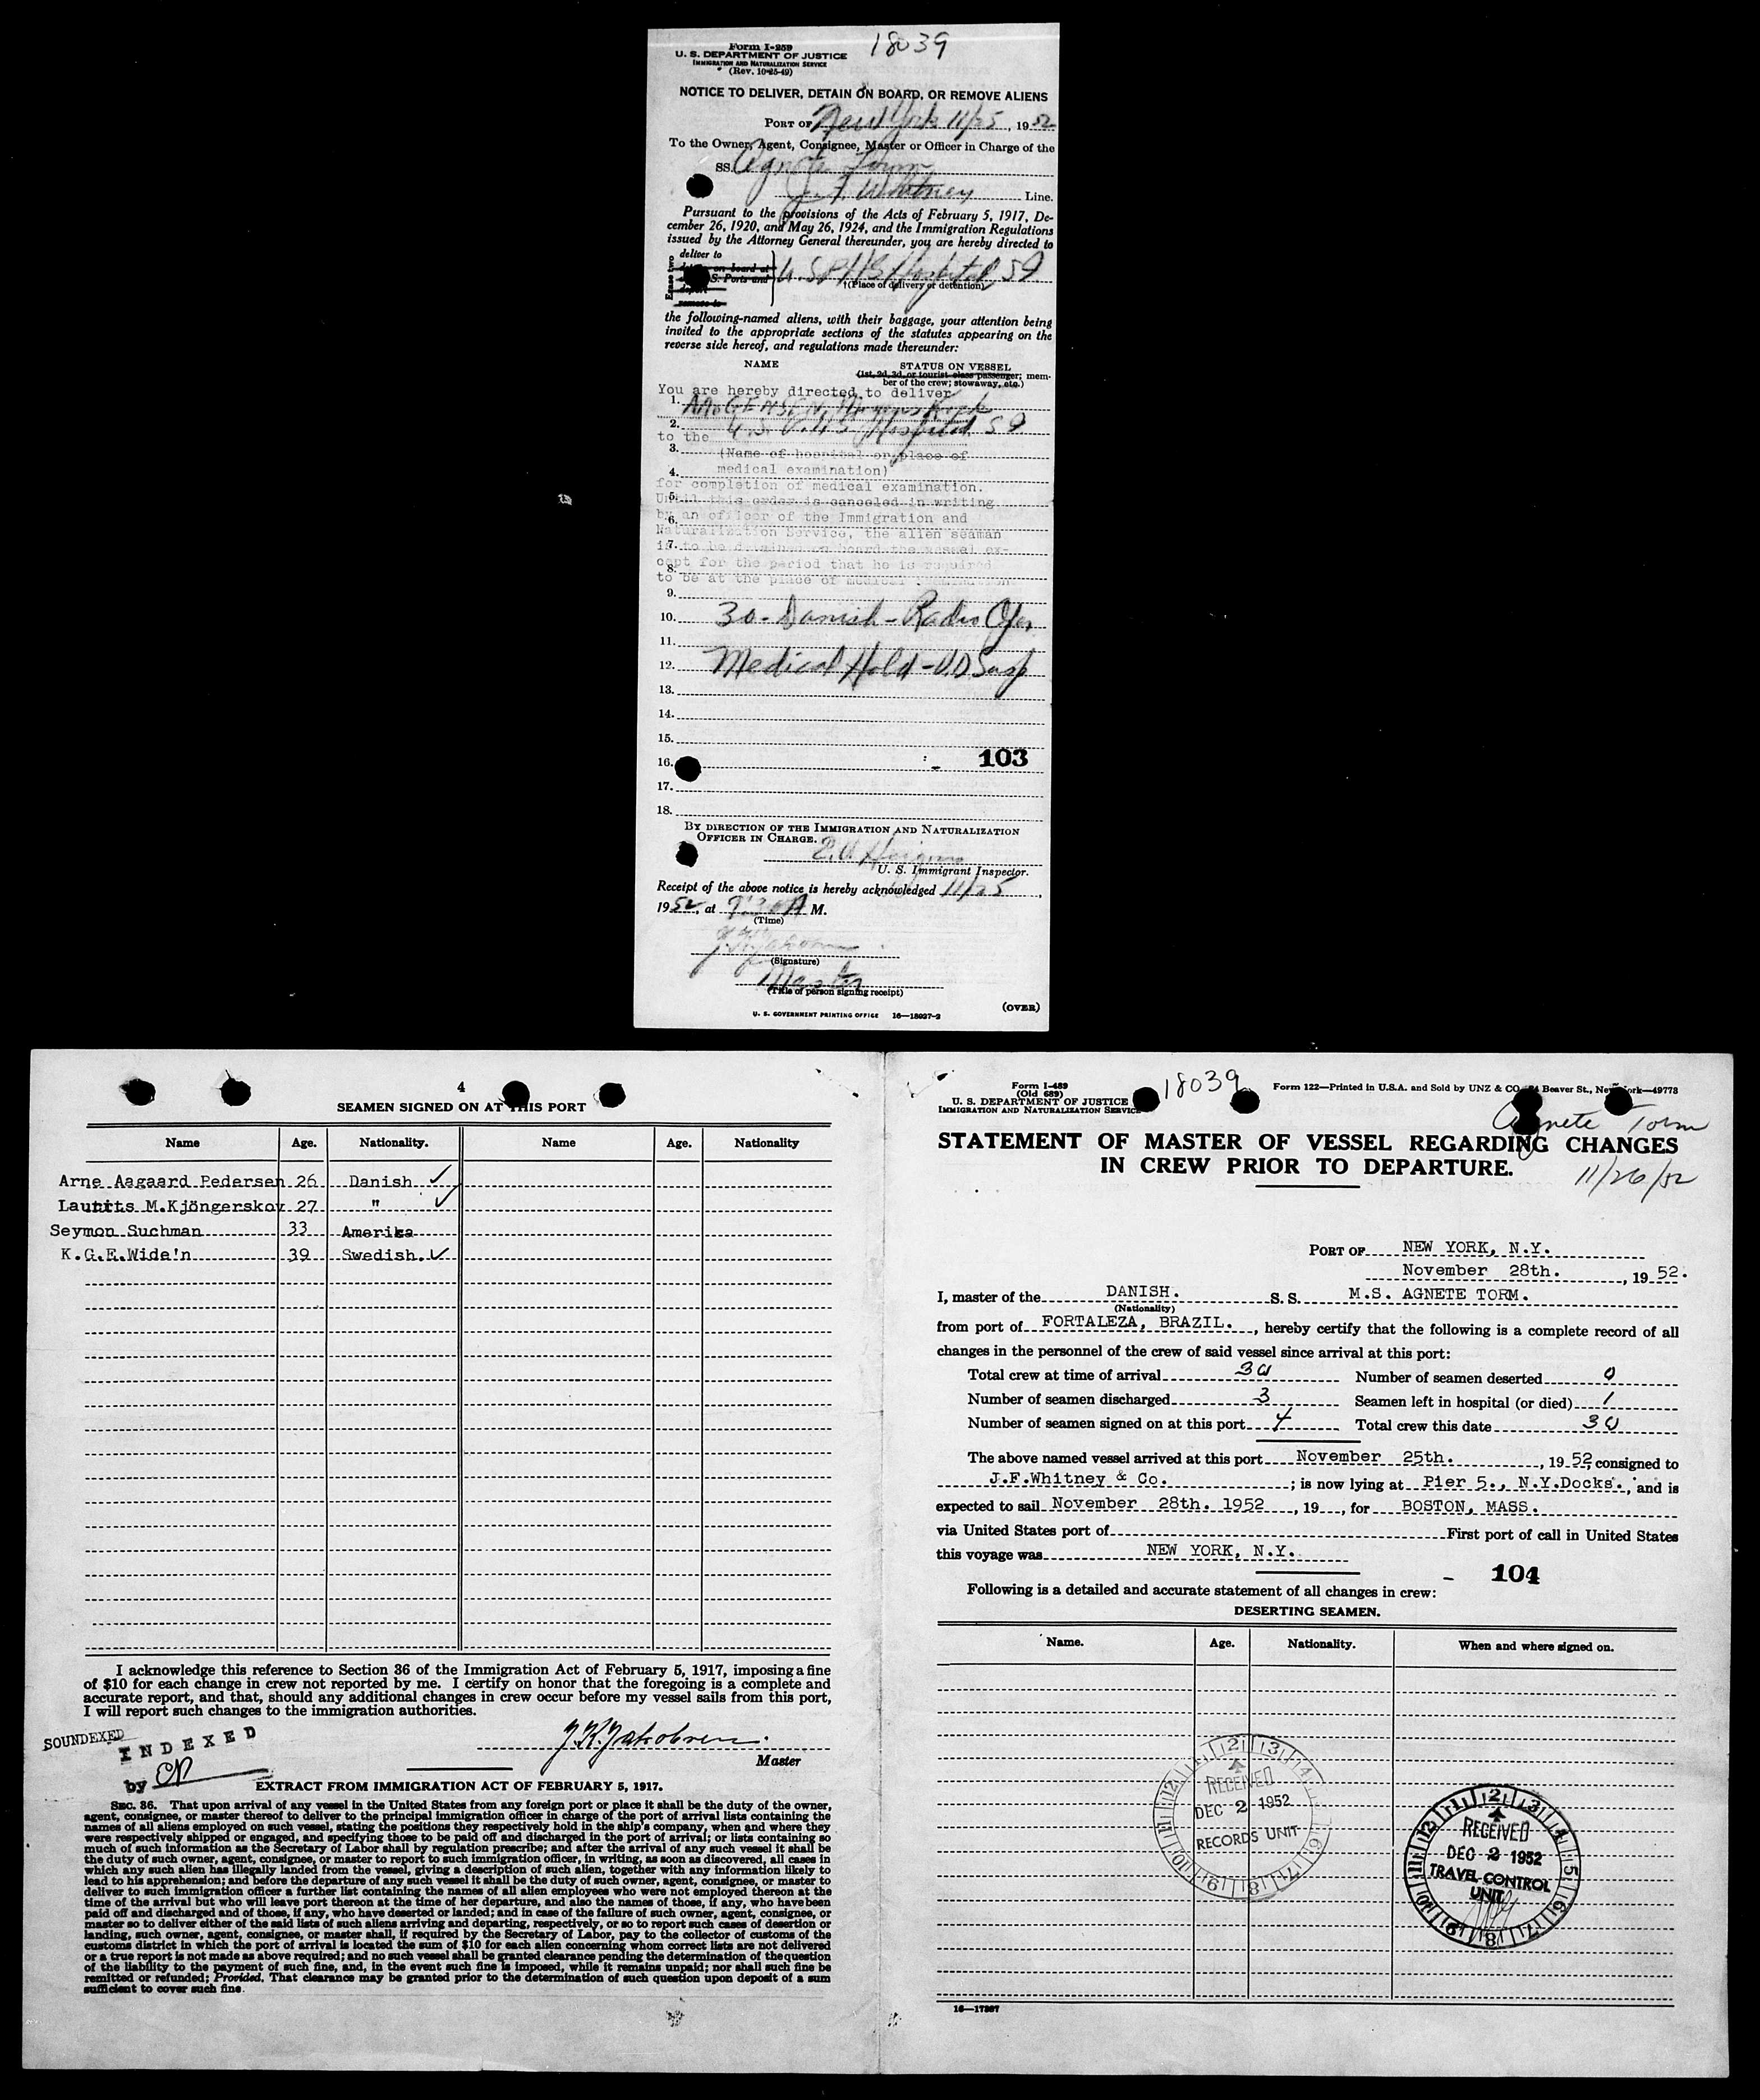 Form I-259
18039
U. S. DEPARTMENT OF JUSTICE
IMMIGRATION AND NATURALIZATION SERVICE
(Rev. 10-25-49)
NOTICE TO DELIVER, DETAIN ON BOARD, OR REMOVE ALIENS
PORT OF New York 11/25, 1952
To the Owner, Agent, Consignee, Master or Officer in Charge of the
SS. Agnete Torm
J. F. Whitney Line.
Pursuant to the provisions of the Acts of February 5, 1917, De-
cember 26, 1920, and May 26, 1924, and the Immigration Regulations
issued by the Attorney General thereunder, you are hereby directed to
deliver to
on board at
S. Ports and
remove to
Erase two
U.S.P.H.S Hospital SI
†(Place of delivery or detention)
the following-named aliens, with their baggage, your attention being
invited to the appropriate sections of the statutes appearing on the
reverse side hereof, and regulations made thereunder:
NAME
STATUS ON VESSEL
(1st, 2d, 3d, or tourist class passenger; mem-
ber of the crew; stowaway, etc.)
You are hereby directed to deliver
1.
2. U.S. P.H.S Hospital SI
to the
3. (Name of hospital or place of
4. medical examination)
for completion of medical examination.
5. Until this order is canceled in writing
by an officer of the Immigration and
6.
Naturalization Service, the alien seaman
7. is to be detained on board the vessel ex-
cept for the period that he is required
8.
to be at the place of medical examination.
9.
10. 30 - Danish - Radio Ofer
11.
12. Medical Hold - V.D Susp
13.
14.
15.
103
16.
17.
18.
BY DIRECTION OF THE IMMIGRATION AND NATURALIZATION
OFFICER IN CHARGE.
U. S. Immigrant Inspector.
Receipt of the above notice is hereby acknowledged 11/25,
1952, at 9:30 A M.
(Time)
J.K. Jakobsen
(Signature)
Master
(Title of person signing receipt)
(OVER)
U. S. GOVERNMENT PRINTING OFFICE 16—18027-2
4
SEAMEN SIGNED ON AT THIS PORT
Name Age. Nationality. Name Age. Nationality
Arne Aagaard Pedersen 26 Danish ✓
Lauhits M.Kjöngerskov 27 " ✓
Seymon Suchman 33 Amerika
K.G.E.Wide'n 39 Swedish. ✓
I acknowledge this reference to Section 36 of the Immigration Act of February 5, 1917, imposing a fine
of $10 for each change in crew not reported by me. I certify on honor that the foregoing is a complete and
accurate report, and that, should any additional changes in crew occur before my vessel sails from this port,
I will report such changes to the immigration authorities.
SOUNDEXED
INDEXED
by
J.K. Jakobsen.
Master
EXTRACT FROM IMMIGRATION ACT OF FEBRUARY 5, 1917.
SEC. 36. That upon arrival of any vessel in the United States from any foreign port or place it shall be the duty of the owner,
agent, consignee, or master thereof to deliver to the principal immigration officer in charge of the port of arrival lists containing the
names of all aliens employed on such vessel, stating the positions they respectively hold in the ship's company, when and where they
were respectively shipped or engaged, and specifying those to be paid off and discharged in the port of arrival; or lists containing so
much of such information as the Secretary of Labor shall by regulation prescribe; and after the arrival of any such vessel it shall be
the duty of such owner, agent, consignee, or master to report to such immigration officer, in writing, as soon as discovered, all cases in
which any such alien has illegally landed from the vessel, giving a description of such alien, together with any information likely to
lead to his apprehension; and before the departure of any such vessel it shall be the duty of such owner, agent, consignee, or master to
deliver to such immigration officer a further list containing the names of all alien employees who were not employed thereon at the
time of the arrival but who will leave port thereon at the time of her departure, and also the names of those, if any, who have been
paid off and discharged and of those, if any, who have deserted or landed; and in case of the failure of such owner, agent, consignee, or
master so to deliver either of the said lists of such aliens arriving and departing, respectively, or so to report such cases of desertion or
landing, such owner, agent, consignee, or master shall, if required by the Secretary of Labor, pay to the collector of customs of the
customs district in which the port of arrival is located the sum of $10 for each alien concerning whom correct lists are not delivered
or a true report is not made as above required; and no such vessel shall be granted clearance pending the determination of the question
of the liability to the payment of such fine, and, in the event such fine is imposed, while it remains unpaid; nor shall such fine be
remitted or refunded; Provided, That clearance may be granted prior to the determination of such question upon deposit of a sum
sufficient to cover such fine.
Form I-489
(Old 689)
U. S. DEPARTMENT OF JUSTICE
IMMIGRATION AND NATURALIZATION SERVICE
18039
Form 122—Printed in U.S.A. and Sold by UNZ & CO., 24 Beaver St., New York—49773
Agnete Torm
STATEMENT OF MASTER OF VESSEL REGARDING CHANGES
IN CREW PRIOR TO DEPARTURE.
11/26/52
PORT OF NEW YORK, N.Y.
November 28th. , 19 52.
I, master of the DANISH. S. S. M.S. AGNETE TORM.
(Nationality)
from port of FORTALEZA, BRAZIL. , hereby certify that the following is a complete record of all
changes in the personnel of the crew of said vessel since arrival at this port:
Total crew at time of arrival 30 Number of seamen deserted 0
Number of seamen discharged 3 Seamen left in hospital (or died) 1
Number of seamen signed on at this port 4 Total crew this date 30
The above named vessel arrived at this port November 25th. , 19 52, consigned to
J.F.Whitney & Co. ; is now lying at Pier 5., N.Y.Docks. , and is
expected to sail November 28th. 1952 , 19 , for BOSTON, MASS.
via United States port of First port of call in United States
this voyage was NEW YORK, N.Y.
104
Following is a detailed and accurate statement of all changes in crew:
DESERTING SEAMEN.
Name. Age. Nationality. When and where signed on.
RECEIVED
DEC 2 1952
RECORDS UNIT
RECEIVED
DEC 2 1952
TRAVEL CONTROL
UNIT
16—17207